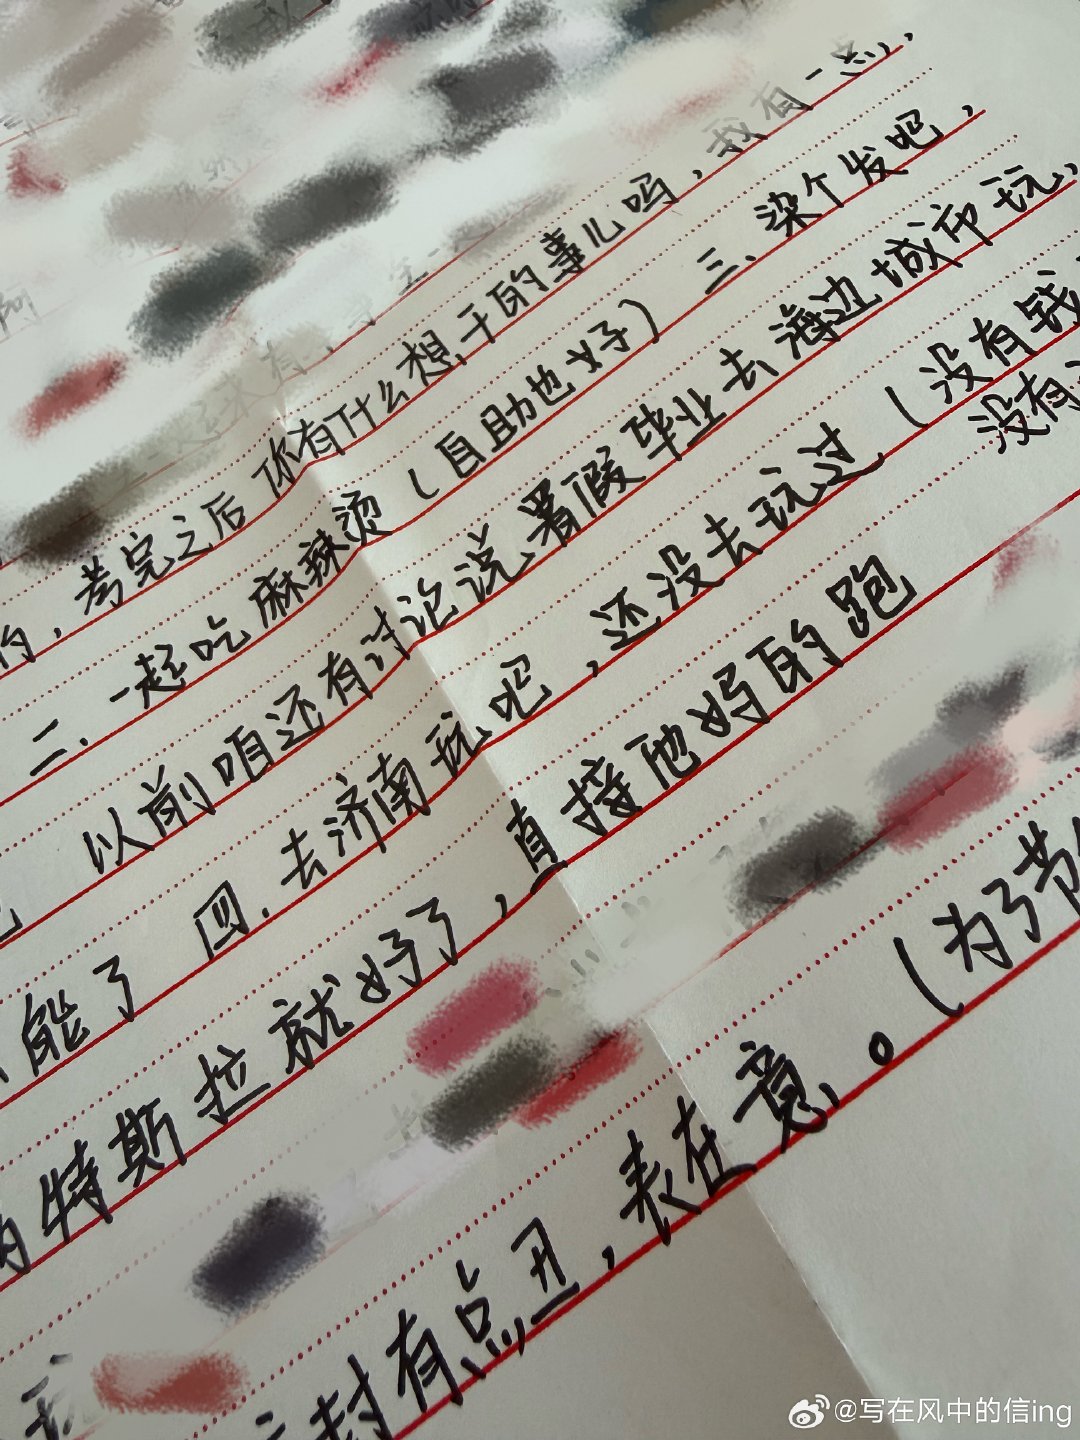 的，考完之后 你有什么想干的事儿吗，我有一点，
二、一起吃麻辣烫（自助也好） 三、染个发吧，
以前咱还有讨论说暑假毕业去海边城市玩，
能了 四、去济南玩吧，还没去玩过（没有钱
没有
特斯拉就好了，直接他妈的跑
封有点丑，表在意。（为了节
@写在风中的信ing